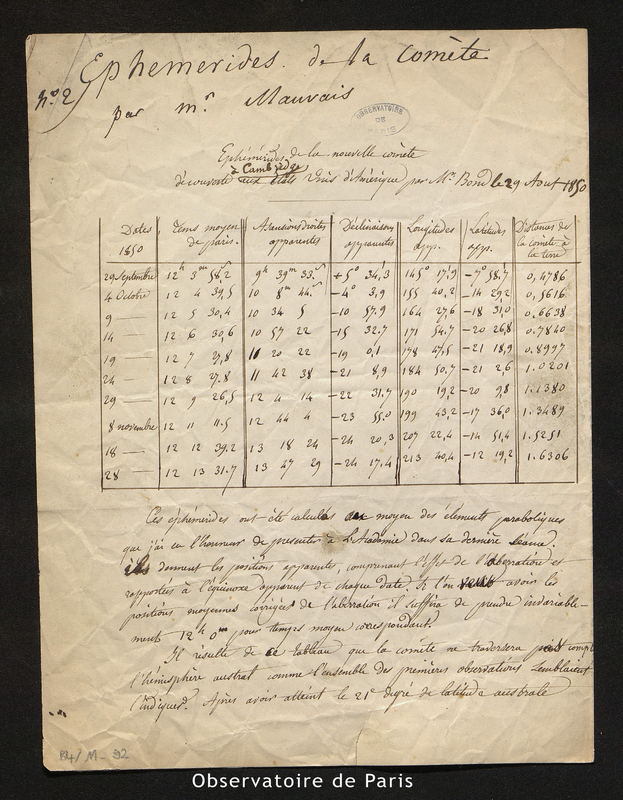 Ephemerides. de la comète
nº. 2
par mr Mauvais
OBSERVATOIRE DE PARIS
Ephémérides de la nouvelle comète
à Cambridge
découverte aux états Unis d'Amérique par Mr. Bond le 29 Aout 1850
Dates 1850 | Tems moyen de paris. | Ascensions droites apparentes | Déclinaisons apparentes | Longitudes app. | Latitudes app. | Distances de la comète à la terre
29 Septembre 12h 3m 58,2 9h 39m 33s +5° 34,3 145° 17,9 -7° 58,7 0,4786
4 Octobre 12 4 39,5 10 8m 44s -4° 3,9 155 40,2 -14 29,2 0,5616
9 — 12 5 30,4 10 34 5 -10 57,9 164 27,6 -18 31,0 0,6638
14 12 6 30,6 10 57 22 -15 32.7 171 54,7 -20 26,8 0,7840
19 — 12 7 27,8 11 20 22 -19 0,1 178 47,5 -21 18,9 0,8997
24 — 12 8 27.8 11 42 38 -21 8,9 184 50,7 -21 2,6 1.0201
29 — 12 9 26,5 12 4 14 -22 31.7 190 19,2 -20 9,8 1.1380
8 novembre 12 11 11.5 12 44 4 -23 55.0 199 43,2 -17 36,0 1.3489
18 — 12 12 39.2 13 18 24 -24 20,3 207 22,4 -14 51,4 1.5251
28 — 12 13 31.7 13 47 29 -24 17,4 213 40,4 -12 19,2 1.6306
Ces éphémérides ont été calculées au moyen des élements paraboliques
que j'ai eu l'honneur de presenter à L'Académie dans sa dernière séance.
ils donnent les positions apparentes, comprenant l'effet de l'aberration et
rapportées à l'équinoxe apparent de chaque date. Si l'on veut avoir les
positions moyennes corrigées de l'abération il suffira de prendre invariable-
ment 12h 0m pour temps moyen correspondant.
Il résulte de ce tableau que la comète ne traversera pas
l'hémisphère austral comme l'ensemble des premières observations semblaient
l'indiquer. Après avoir atteint le 21e degré de latitude australe
M-92
Observatoire de Paris